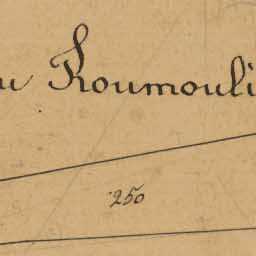 Roumouli
250